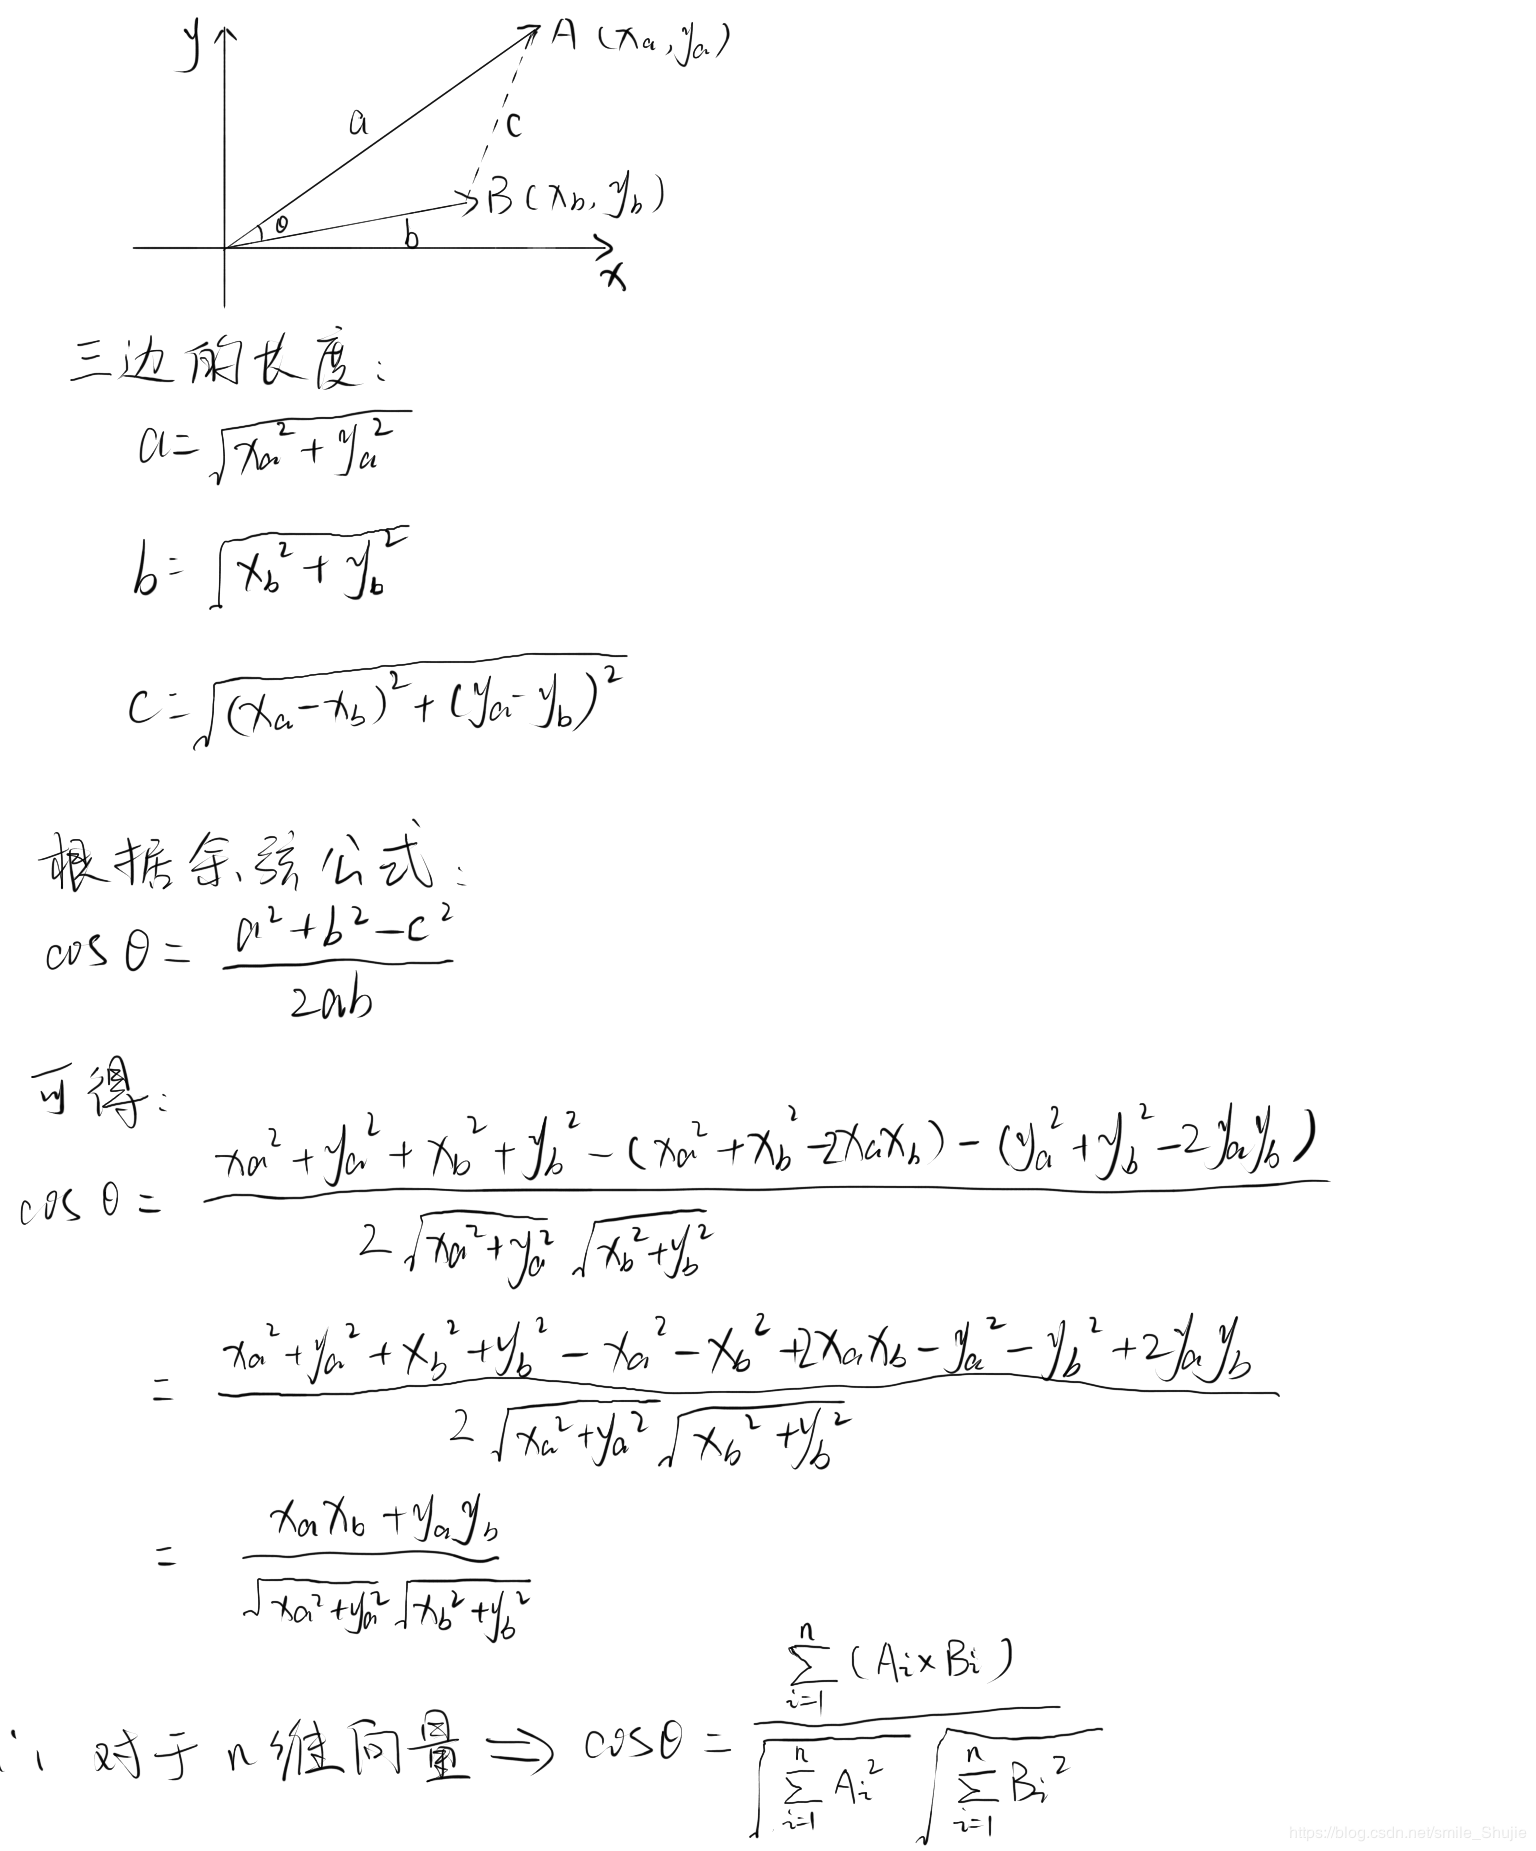 y
A (xₐ, yₐ)
a
c
B (x_b, y_b)
θ
b
x
三边的长度:
a = √(xₐ² + yₐ²)
b = √(x_b² + y_b²)
c = √((xₐ - x_b)² + (yₐ - y_b)²)
根据余弦公式:
cos θ = (a² + b² - c²) / 2ab
可得:
cos θ = (xₐ² + yₐ² + x_b² + y_b² - (xₐ² + x_b² - 2xₐx_b) - (yₐ² + y_b² - 2yₐy_b)) / (2√(xₐ² + yₐ²) √(x_b² + y_b²))
= (xₐ² + yₐ² + x_b² + y_b² - xₐ² - x_b² + 2xₐx_b - yₐ² - y_b² + 2yₐy_b) / (2√(xₐ² + yₐ²) √(x_b² + y_b²))
= (xₐx_b + yₐy_b) / (√(xₐ² + yₐ²) √(x_b² + y_b²))
∴ 对于n维向量 ⇒ cosθ = (∑_{i=1}^{n} (Aᵢ × Bᵢ)) / (√(∑_{i=1}^{n} Aᵢ²) √(∑_{i=1}^{n} Bᵢ²))
https://blog.csdn.net/smile_Shujie